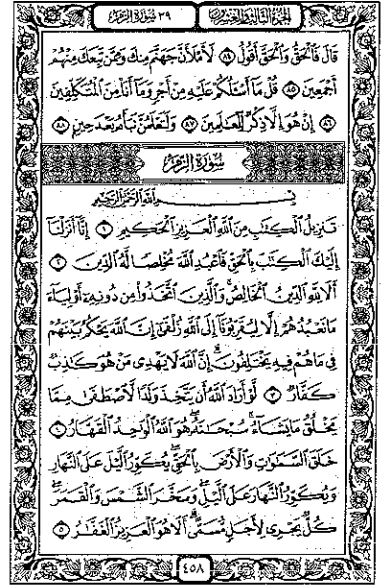 الجزء الثالث والعشرون ٣٩ سورة الزمر
قَالَ فَٱلْحَقُّ وَٱلْحَقَّ أَقُولُ ٨٤ لَأَمْلَأَنَّ جَهَنَّمَ مِنكَ وَمِمَّن تَبِعَكَ مِنْهُمْ
أَجْمَعِينَ ٨٥ قُلْ مَآ أَسْـَٔلُكُمْ عَلَيْهِ مِنْ أَجْرٍ وَمَآ أَنَا۠ مِنَ ٱلْمُتَكَلِّفِينَ
٨٦ إِنْ هُوَ إِلَّا ذِكْرٌ لِّلْعَـٰلَمِينَ ٨٧ وَلَتَعْلَمُنَّ نَبَأَهُۥ بَعْدَ حِينٍۭ ٨٨
سُورَةُ الزُّمَرِ
بِسْمِ ٱللَّهِ ٱلرَّحْمَـٰنِ ٱلرَّحِيمِ
تَنزِيلُ ٱلْكِتَـٰبِ مِنَ ٱللَّهِ ٱلْعَزِيزِ ٱلْحَكِيمِ ١ إِنَّآ أَنزَلْنَآ
إِلَيْكَ ٱلْكِتَـٰبَ بِٱلْحَقِّ فَٱعْبُدِ ٱللَّهَ مُخْلِصًا لَّهُ ٱلدِّينَ ٢
أَلَا لِلَّهِ ٱلدِّينُ ٱلْخَالِصُ ۚ وَٱلَّذِينَ ٱتَّخَذُوا۟ مِن دُونِهِۦٓ أَوْلِيَآءَ
مَا نَعْبُدُهُمْ إِلَّا لِيُقَرِّبُونَآ إِلَى ٱللَّهِ زُلْفَىٰٓ إِنَّ ٱللَّهَ يَحْكُمُ بَيْنَهُمْ
فِى مَا هُمْ فِيهِ يَخْتَلِفُونَ ۗ إِنَّ ٱللَّهَ لَا يَهْدِى مَنْ هُوَ كَـٰذِبٌ
كَفَّارٌ ٣ لَّوْ أَرَادَ ٱللَّهُ أَن يَتَّخِذَ وَلَدًا لَّٱصْطَفَىٰ مِمَّا
يَخْلُقُ مَا يَشَآءُ ۚ سُبْحَـٰنَهُۥ ۖ هُوَ ٱللَّهُ ٱلْوَٰحِدُ ٱلْقَهَّارُ ٤
خَلَقَ ٱلسَّمَـٰوَٰتِ وَٱلْأَرْضَ بِٱلْحَقِّ ۖ يُكَوِّرُ ٱلَّيْلَ عَلَى ٱلنَّهَارِ
وَيُكَوِّرُ ٱلنَّهَارَ عَلَى ٱلَّيْلِ ۖ وَسَخَّرَ ٱلشَّمْسَ وَٱلْقَمَرَ ۖ
كُلٌّ يَجْرِى لِأَجَلٍ مُّسَمًّى ۗ أَلَا هُوَ ٱلْعَزِيزُ ٱلْغَفَّـٰرُ ٥
٤٥٨